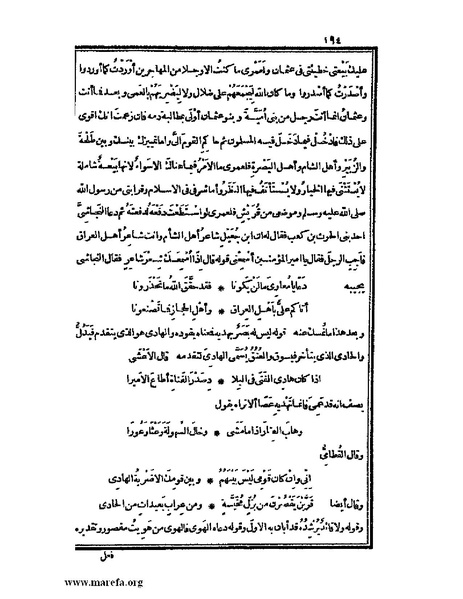 ١٩٤
عليك بيعتي خطيئتي في عثمان ولعمري ما كنت الا رجلا من المهاجرين أوردت كما أوردوا
وأصدرت كما أصدروا وما كان الله ليجمعهم على ضلال ولا ليضربهم بالعمى وبعد فما أنت
وعثمان انما أنت رجل من بني أمية وبنو عثمان أولى بمطالبة دمه فان زعمت انك اقوى
على ذلك فادخل فيما دخل فيه المسلمون ثم حاكم القوم الى وأما تمييزك بينك وبين طلحة
والزبير وأهل الشام وأهل البصرة فلعمري ما الامر فيما هناك الاسواء لانها بيعة شاملة
لا يستثنى فيها الخيار ولا يستأنف فيها النظر وأما شرفي في الاسلام وقرابتي من رسول الله
صلى الله عليه وسلم وموضعي من قريش فلعمري لو استطعت دفعه لدفعته ثم دعا النجاشي
احد بني الحرث بن كعب فقال له ان ابن جعيل شاعر أهل الشأم وانت شاعر أهل العراق
فأجب الرجل فقال يا امير المؤمنين أسمعني قوله قال اذا أسمعك شعر شاعر فقال النجاشي
يجيبه دعا يا معاوي ما لن يكونا * فقد حقق الله ما تحذرونا
أتاكم علي بأهل العراق * وأهل الحجاز فما تصنعونا
وبعد هذا ما نمسك عنه قوله ليس له بصر يهديه فمعناه يقوده والهادي هو الذي يتقدم فيدل
والحادي الذي يتأخر فيسوق والعنق يسمى الهادي لتقدمه قال الأعشى
اذا كان هادي الفتى في البلا * د صدر القناة أطاع الاميرا
يصف انه قد عمي فانما تهديه عصا ألا تراه يقول
وهاب العثار اذا ما مشى * وخال السهولة وعثا وعورا
وقال القطامي
اني وان كان قومي ليس بينهم * وبين قومك الا ضربة الهادي
وقال أيضا قربن يقصون من بزل مخيسة * ومن عراب بعيدات من الحادي
وقوله ولا قائد يرشده قد أبان به الاول وقوله دعاه الهوى فالهوى من هويت مقصور وتقديره
فعل
www.marefa.org